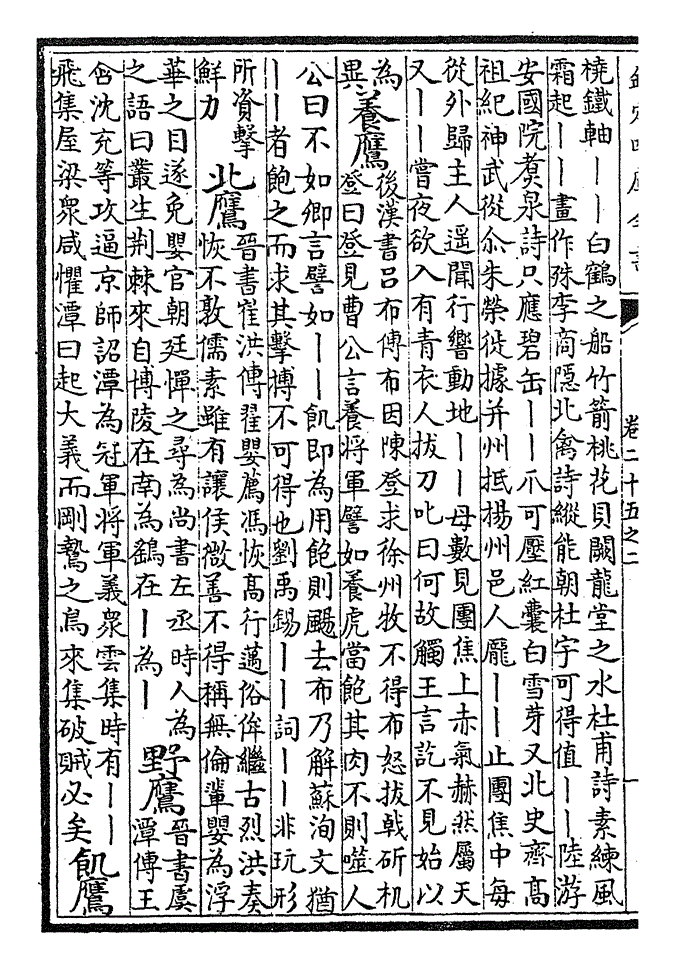 欽定四庫全書 卷二十五之二
橈鐵軸｜｜白鶴之船竹箭桃花貝闕龍堂之水杜甫詩素練風
霜起｜｜畫作殊李商隱北禽詩縱能朝杜宇可得值｜｜陸游
安國院煑泉詩只應碧缶｜｜爪可壓紅囊白雪芽又北史齊高
祖紀神武從尒朱榮徙據并州抵揚州邑人龐｜｜止團焦中每
從外歸主人遥聞行響動地｜｜母數見團焦上赤氣赫然屬天
又｜｜嘗夜欲入有青衣人拔刀叱曰何故觸王言訖不見始以
為
異
養鷹
後漢書吕布傳布因陳登求徐州牧不得布怒拔戟斫机
登曰登見曹公言養將軍譬如養虎當飽其肉不則噬人
公曰不如卿言譬如｜｜飢即為用飽則颺去布乃解蘇洵文猶
｜｜者飽之而求其擊搏不可得也劉禹錫｜｜詞｜｜非玩形
所資擊
鮮力
北鷹
晉書崔洪傳翟嬰薦馮恢高行邁俗侔繼古烈洪奏
恢不敦儒素雖有讓侯微善不得稱無倫輩嬰為浮
華之目遂免嬰官朝廷憚之尋為尚書左丞時人為
之語曰叢生荆棘來自博陵在南為鷂在｜為｜
野鷹
晉書虞
潭傳王
含沈充等攻逼京師詔潭為冠軍將軍義衆雲集時有｜｜
飛集屋梁衆咸懼潭曰起大義而剛鷙之鳥來集破賊必矣
飢鷹